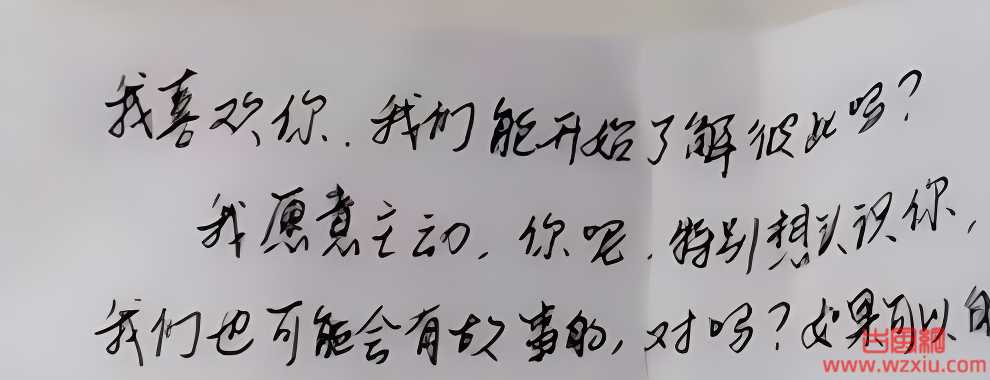 我喜欢你.我们能开始了解彼此吗?
我愿意主动,你呢.特别想认识你,
我们也可能会有故事的,对吗?如果可以
www.wzxiu.com